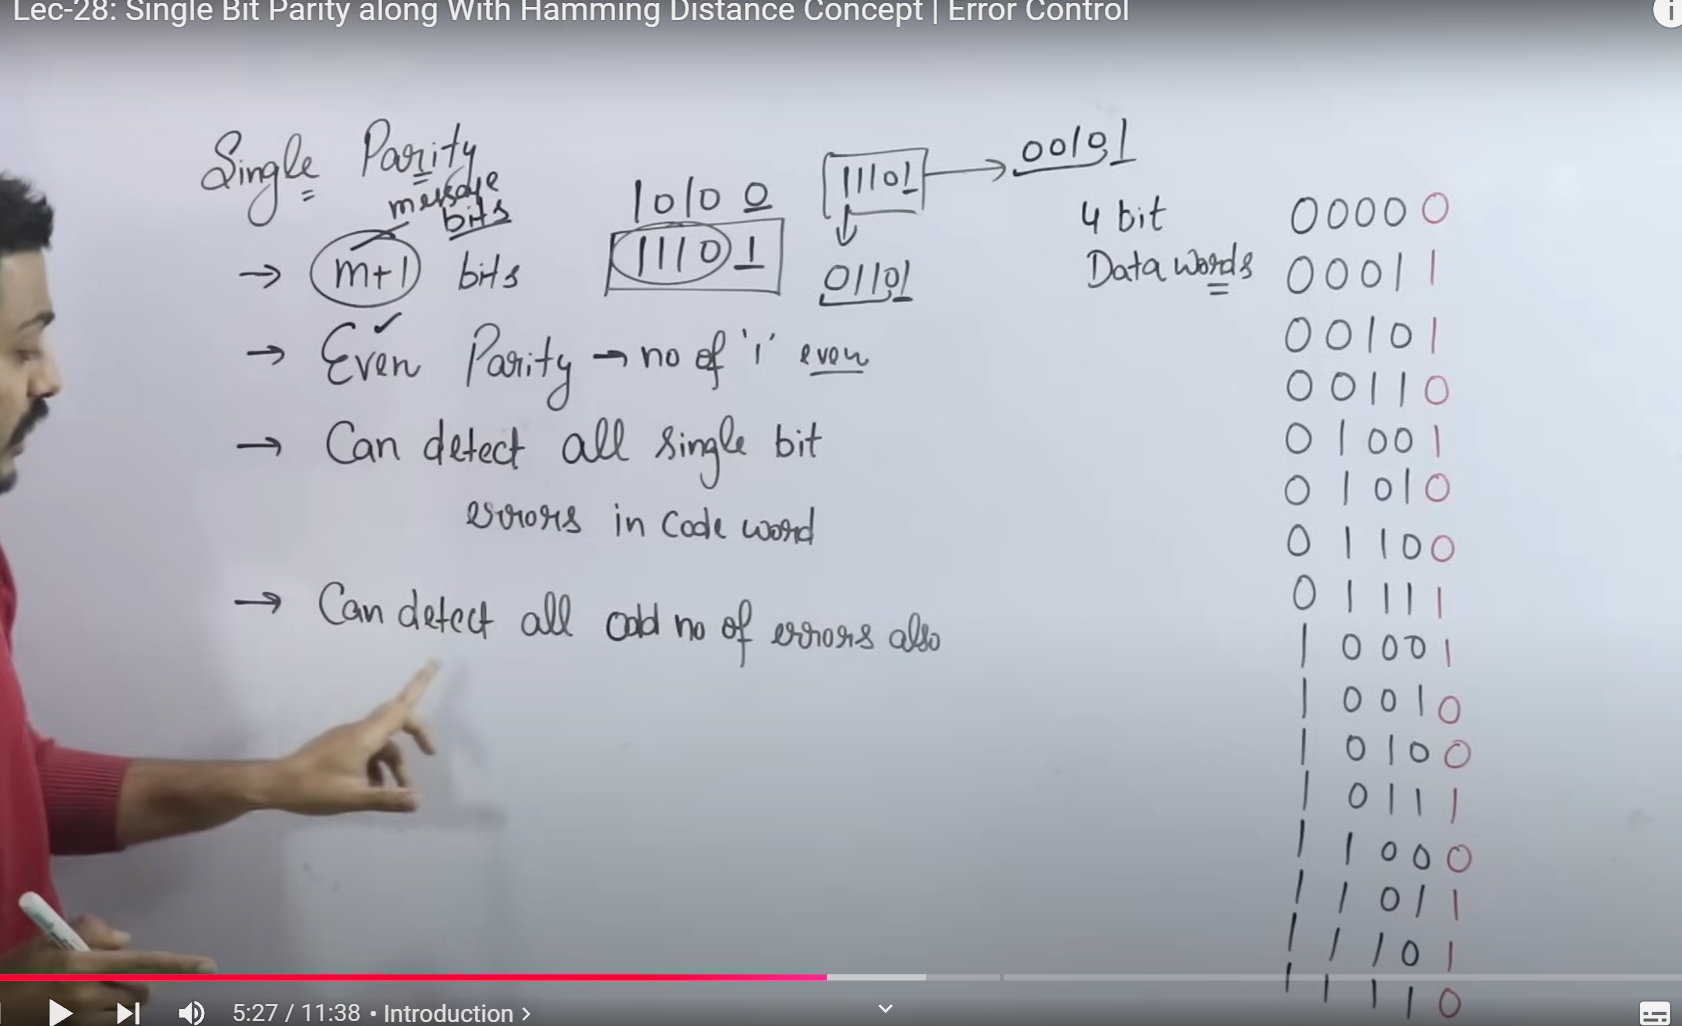 Lec-28: Single Bit Parity along With Hamming Distance Concept | Error Control
Single Parity
message
bits
→ m+1 bits
10100
11101
11101 → 00101
↓
01101
→ Even Parity → no of '1' even
→ Can detect all single bit
errors in Code word
→ Can detect all odd no of errors also
4 bit
Data words
0 0 0 0 0
0 0 0 1 1
0 0 1 0 1
0 0 1 1 0
0 1 0 0 1
0 1 0 1 0
0 1 1 0 0
0 1 1 1 1
1 0 0 0 1
1 0 0 1 0
1 0 1 0 0
1 0 1 1 1
1 1 0 0 0
1 1 0 1 1
1 1 1 0 1
1 1 1 1 0
5:27 / 11:38 • Introduction >